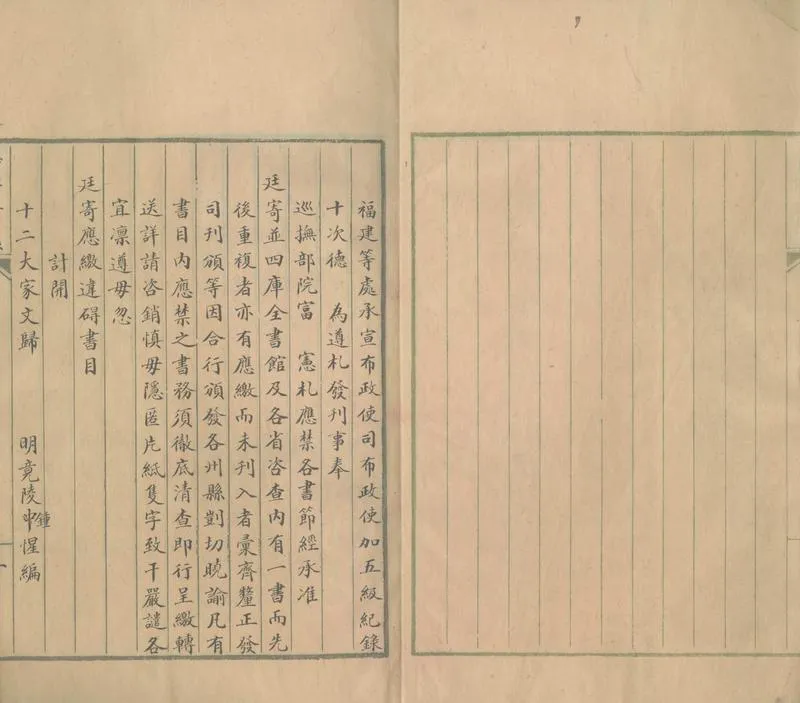 福建等處承宣布政使司布政使加五級紀錄
十次德　為遵札發刊事奉
巡撫部院富　憲札應禁各書節經承准
廷寄並四庫全書館及各省咨查內有一書而先
後重複者亦有應繳而未刊入者彙齊釐正發
司刊頒等因合行頒發各州縣剴切曉諭凡有
書目內應禁之書務須徹底清查即行呈繳轉
送詳請咨銷慎毋隱匿片紙隻字致干嚴譴各
宜凜遵毋忽
廷寄應繳違碍書目
計開
十二大家文歸　　明竟陵鍾惺編